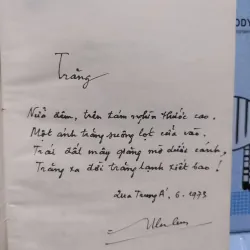 Trăng
Nửa đêm, trên tám nghìn thước cao.
Một ánh trăng suông lọt cửa vào.
Trái đất mây giăng mờ dưới cánh,
Trăng xa đời trăng lạnh biết bao!
Qua Trung Á, 6.1973